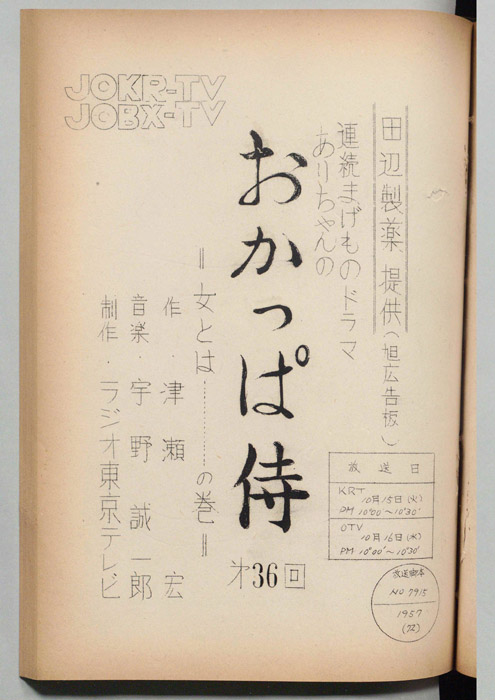 JOKR-TV
JOBX-TV
田辺製薬 提供(旭広告板)
連続まげものドラマ
ありちゃんの
おかっぱ侍
＝女とは…………の巻＝
才36回
作・津瀬 宏
音楽・宇野誠一郎
制作・ラジオ東京テレビ
放送日
KRT
10月15日(火)
PM 10°00'～10°30'
OTV
10月16日(水)
PM 10°00'～10°30'
放送脚本
NO 7915
1957